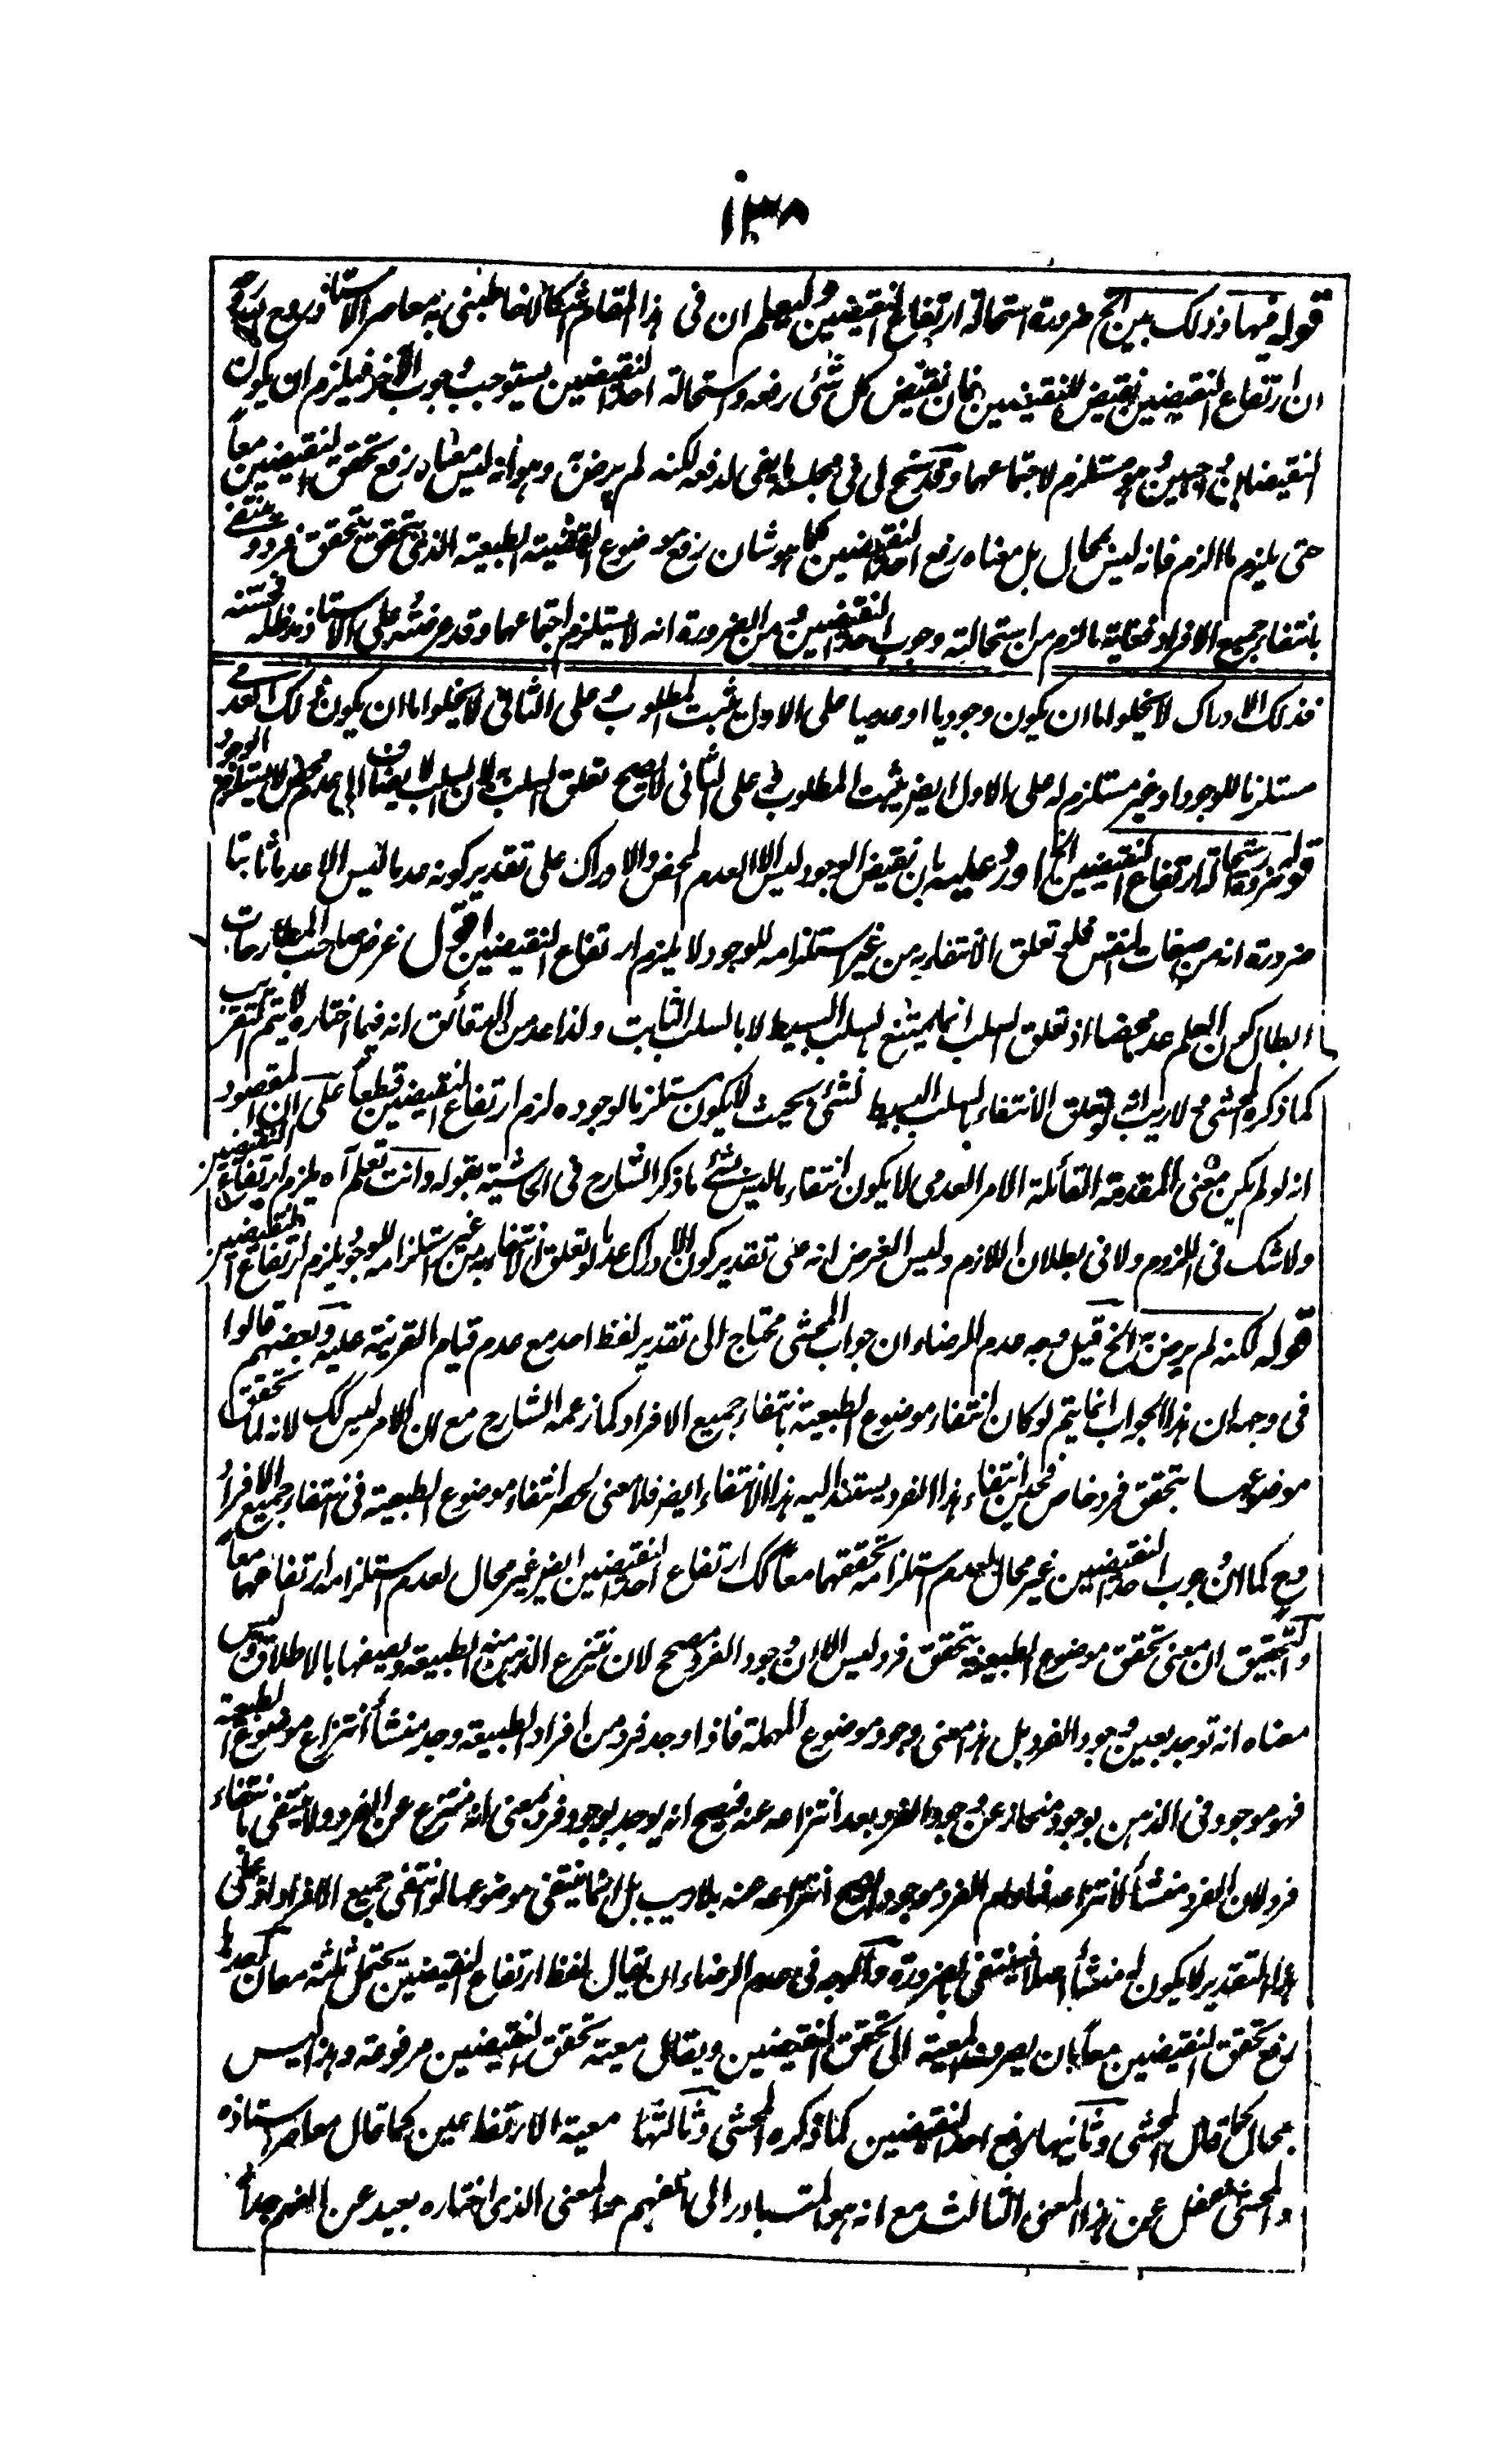 ١٣٨
قوله فيها وذلك بين الخ ضرورة استحالة ارتفاع النقيضين وليعلم ان فى هذا المقام اشكالا خاطبنى به معاصر الاستاذ
ان ارتفاع النقيضين نقيض للنقيضين فان نقيض كل شئ رفعه واستحالة احد النقيضين يستوجب وجوب الآخر فيلزم ان يكون
النقيضان واجبين وهو مستلزم لاجتماعهما وقد سنح لى فى مجلسه ما يفى لدفعه لكنه لم يرض به وهو انه ليس معناه رفع تحقق النقيضين معاً
حتى يلزم ما الزم فانه ليس بمحال بل معناه رفع احد النقيضين كما هو شان رفع موضوع القضية الطبيعية الذى يتحقق بتحقق فرد وينتفى
بانتفاء جميع الافراد فغاية ما لزم من استحالته وجوب احد النقيضين ومن الضرورة انه لا يستلزم اجتماعهما وقد عرضته على الاستاذ مد ظله فحسنه
فذلك الادراك لا يخلوا اما ان يكون وجوديا او عدميا على الاول يثبت المطلوب وعلى الثانى لا يخلوا اما ان يكون ذلك العدمى
مستلزما للوجود او غير مستلزم له على الاول ايضر يثبت المطلوب وعلى الثانى لا يصح تعلق السلب به لان السلب لا يضاف الى عدم محض لا يستلزم الوجود
قوله ضرورة استحالة ارتفاع النقيضين الخ اورد عليه بان نقيض الوجود ليس الا العدم المحض والادراك على تقدير كونه عدما ليس الا عدما ثابتا
ضرورة انه من صفات النفس فلو تعلق الانتفاء به من غير استلزامه للوجود لا يلزم ارتفاع النقيضين اقول غرض صاحب المطارحات
ابطال كون العلم عدما محضا اذ تعلق السلب انما يمتنع بالسلب البسيط لا بالسلب الثابت ولذا عد من الدقائق انه فيما اختاره لا يتم التقريب
كما ذكره المحشى ولا ريب انه لو تعلق الانتفاء بالسلب البسيط لشئ بحيث لا يكون مستلزما لوجوده لزم ارتفاع النقيضين قطعاً على ان المقصود
انه لو لم يكن معنى المقدمة القائلة الامر العدمى لا يكون انتفاء ما ليس بشئ ما ذكر الشارح فى الحاشية بقوله وانت تعلم آه يلزم ارتفاع النقيضين
ولا شك فى اللزوم ولا فى بطلان اللازم وليس الغرض انه على تقدير كون الادراك عدما لو تعلق الانتفاء به من غير استلزامه للوجود يلزم ارتفاع النقيضين
قوله لكنه لم يرض به الخ قيل وجه عدم الرضاء ان جواب المحشى محتاج الى تقدير لفظ احد مع عدم قيام القرينة عليه وبعضهم قالوا
فى وجهه ان هذا الجواب انما يتم لو كان انتفاء موضوع الطبعية بانتفاء جميع الافراد كما زعمه الشارح مع ان الامر ليس كك لانه لما تحقق
موضوعها بتحقق فرد خاص فحين انتفاء هذا الفرد يستند اليه هذا الانتفاء ايضر فلا معنى لحصر انتفاء موضوع الطبعية فى انتفاء جميع الافراد
وح كما ان وجوب احد النقيضين غير محال لعدم استلزامه تحققهما معاً كك ارتفاع احد النقيضين ايضر غير محال لعدم استلزامه ارتفاعهما معاً
والتحقيق ان معنى تحقق موضوع الطبيعية بتحقق فرد ليس الا ان وجود الفرد مصحح لان ينتزع الذهن منه الطبيعة ويصفها بالاطلاق وليس
معناه انه توجد بعين وجود الفرد بل هذا معنى وجود موضوع المهملة فاذا وجد فرد من افراد الطبيعة وجد منشأ انتزاع موضوع الطبعية
فهو موجود فى الذهن بوجود منحاز عن وجود الفرد بعد انتزاعه عنه فيصح انه يوجد بوجود فرد بمعنى انه منتزع عن الفرد ولا ينتفى بانتفاء
فرد لان الفرد منشأ لانتزاعه فما دام الفرد موجودا يصح انتزاعه عنه بلا ريب بل انما ينتفى موضوعها لو انتفى جميع الافراد اذ على
هذا التقدير لا يكون له منشأ اصلا فينتفى بالضرورة والوجه فى عدم الرضاء ان يقال لفظ ارتفاع النقيضين يحتمل ثلثة معان احدها
رفع تحقق النقيضين معاً بان يصرف المعية الى تحقق النقيضين ويقال معية تحقق النقيضين مرفوعة وهذا ليس
بمحال كما قال المحشى وثانيها رفع احد النقيضين كما ذكره المحشى وثالثها معية الارتفاعين كما قال معاصر استاذه
والمحشى غفل عن هذا المعنى الثالث مع انه هو المتبادر الى الفهم والمعنى الذى اختاره بعيد عن الفهم جداً